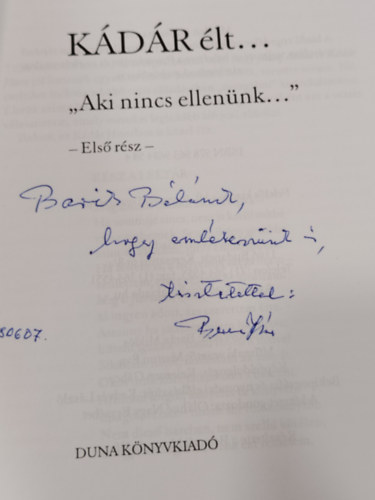 KÁDÁR élt...
„Aki nincs ellenünk...”
– Első rész –
Bélának,
hogy emlékezzünk is,
tisztelettel:
80607.
DUNA KÖNYVKIADÓ